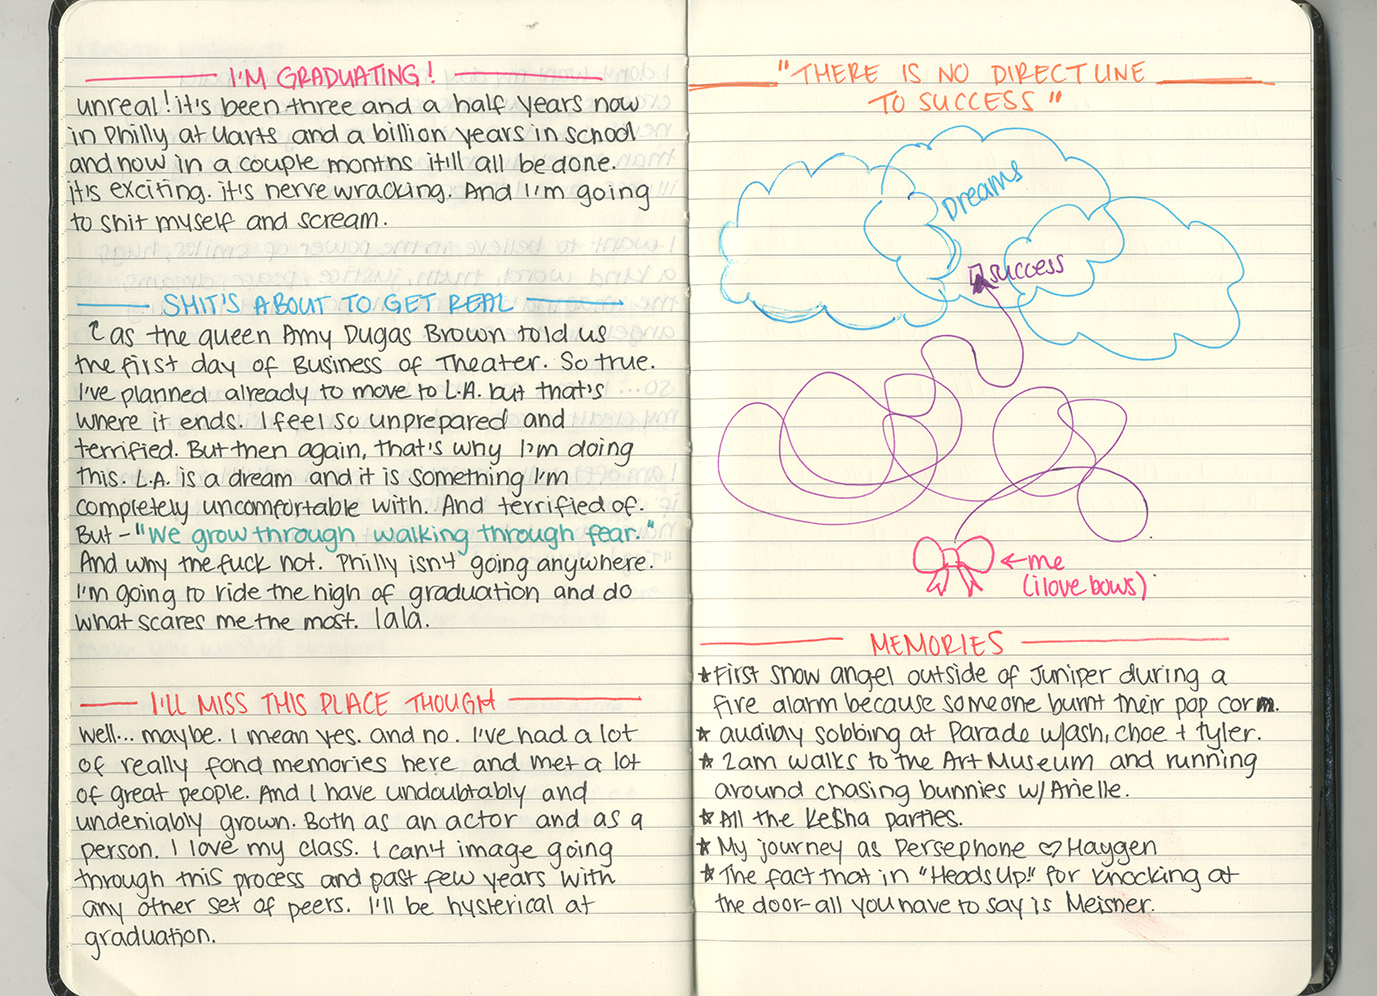 I'M GRADUATING!
unreal! it's been three and a half years now
in Philly at Uarts and a billion years in school
and now in a couple months it'll all be done.
it's exciting. it's nerve wracking. And I'm going
to shit myself and scream.
SHIT'S ABOUT TO GET REAL
as the queen Amy Dugas Brown told us
the first day of Business of Theater. So true.
I've planned already to move to L.A. but that's
where it ends. I feel so unprepared and
terrified. But then again, that's why I'm doing
this. L.A. is a dream and it is something I'm
completely uncomfortable with. And terrified of.
But - "We grow through walking through fear."
And why the fuck not. Philly isn't going anywhere.
I'm going to ride the high of graduation and do
what scares me the most. lala.
I'LL MISS THIS PLACE THOUGH
well... maybe. I mean yes. and no. I've had a lot
of really fond memories here and met a lot
of great people. And I have undoubtably and
undeniably grown. Both as an actor and as a
person. I love my class. I can't image going
through this process and past few years with
any other set of peers. I'll be hysterical at
graduation.
"THERE IS NO DIRECT LINE
TO SUCCESS"
Dreams
success
←me
(i love bows)
MEMORIES
★First snow angel outside of Juniper during a
fire alarm because someone burnt their pop corn.
★ audibly sobbing at Parade w/ash, choe + tyler.
★ 2am walks to the Art Museum and running
around chasing bunnies w/ Arielle.
★ All the Ke$ha parties.
★ My journey as Persephone ♡ Haygen
★ The fact that in "Heads Up!" for knocking at
the door - all you have to say is Meisner.